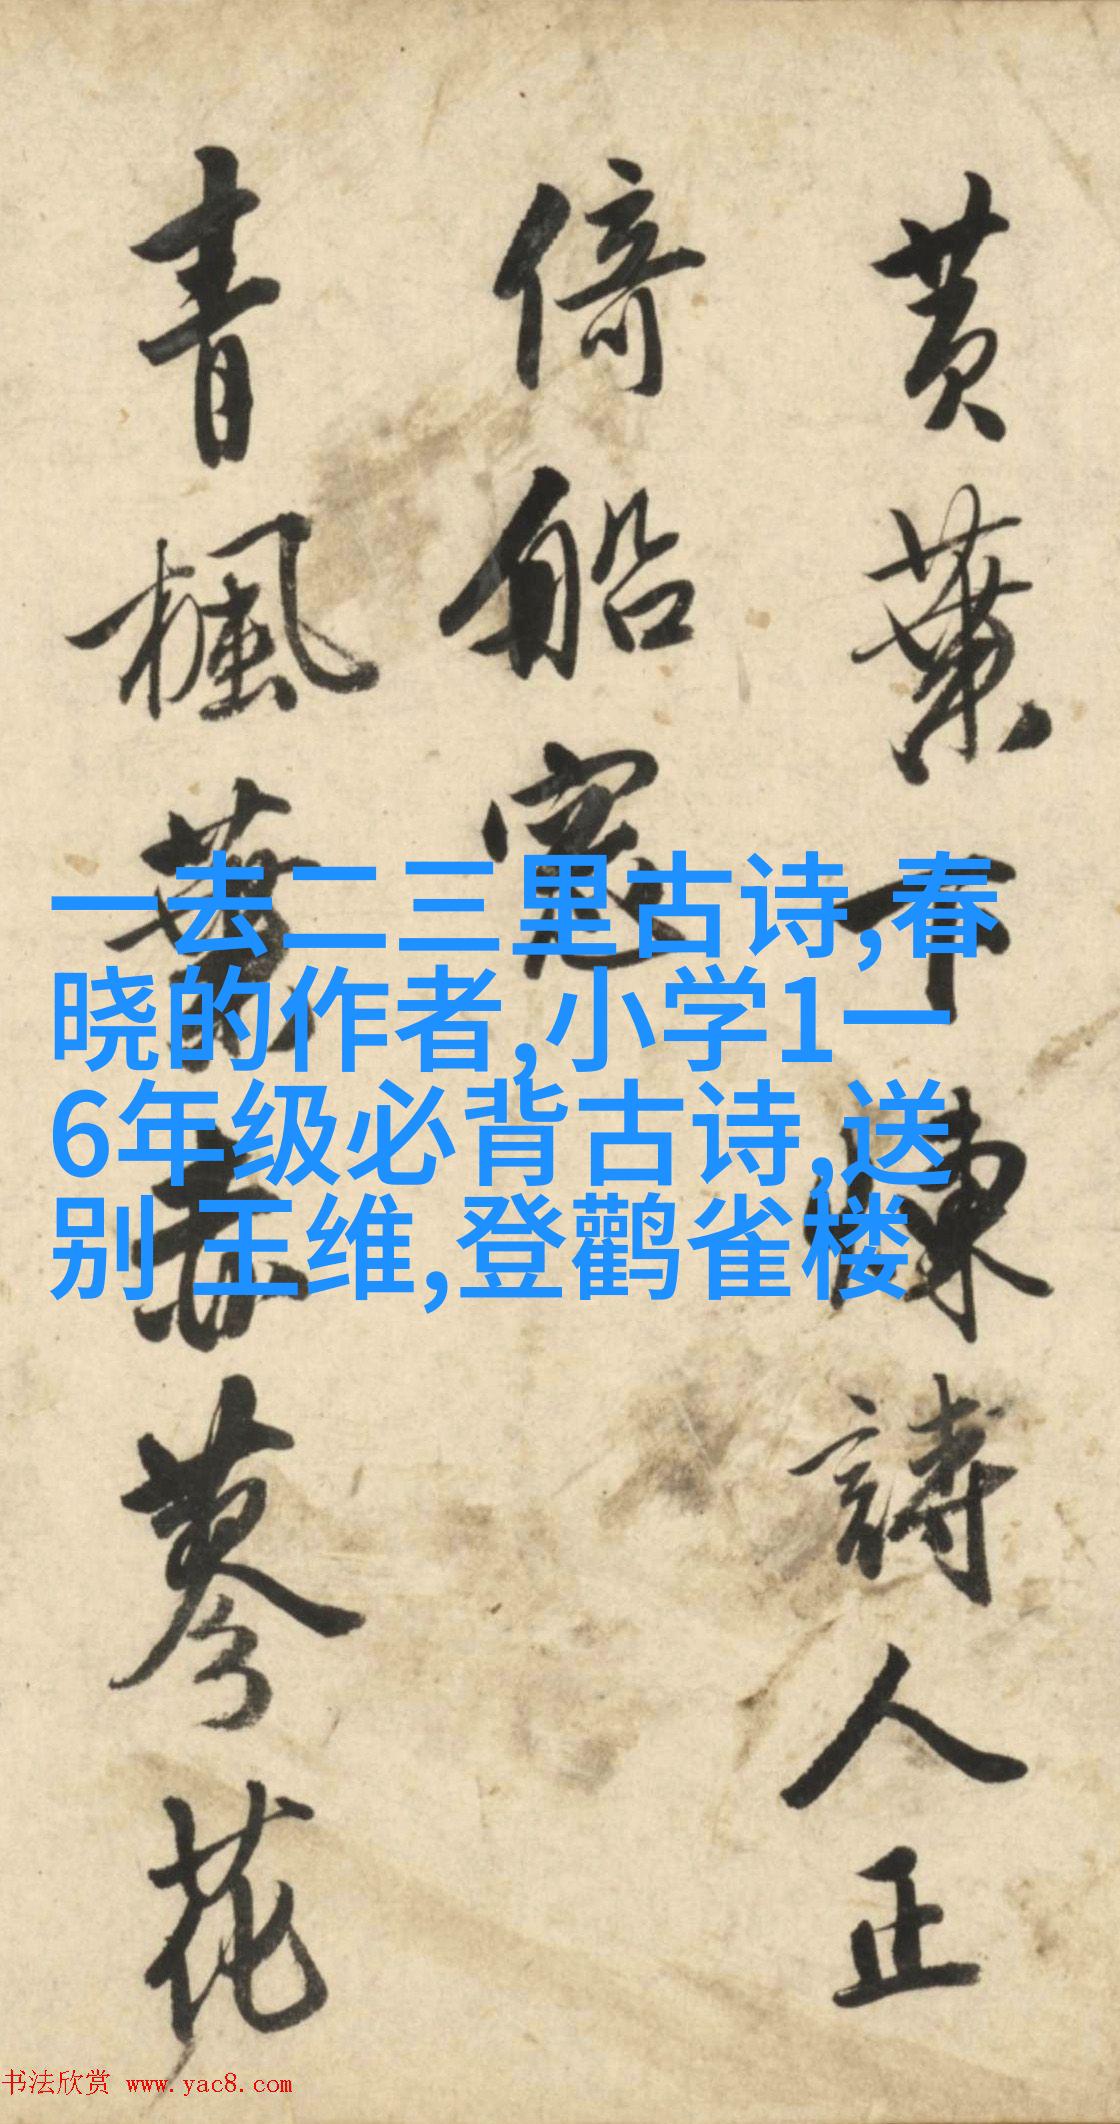 黄葉下詩人正
倚船窓
青楓葉赤蓼花
一去二三里古诗,春
晓的作者,小学1一
6年级必背古诗,送
别 王维,登鹳雀楼
书法欣赏 www.yac8.com